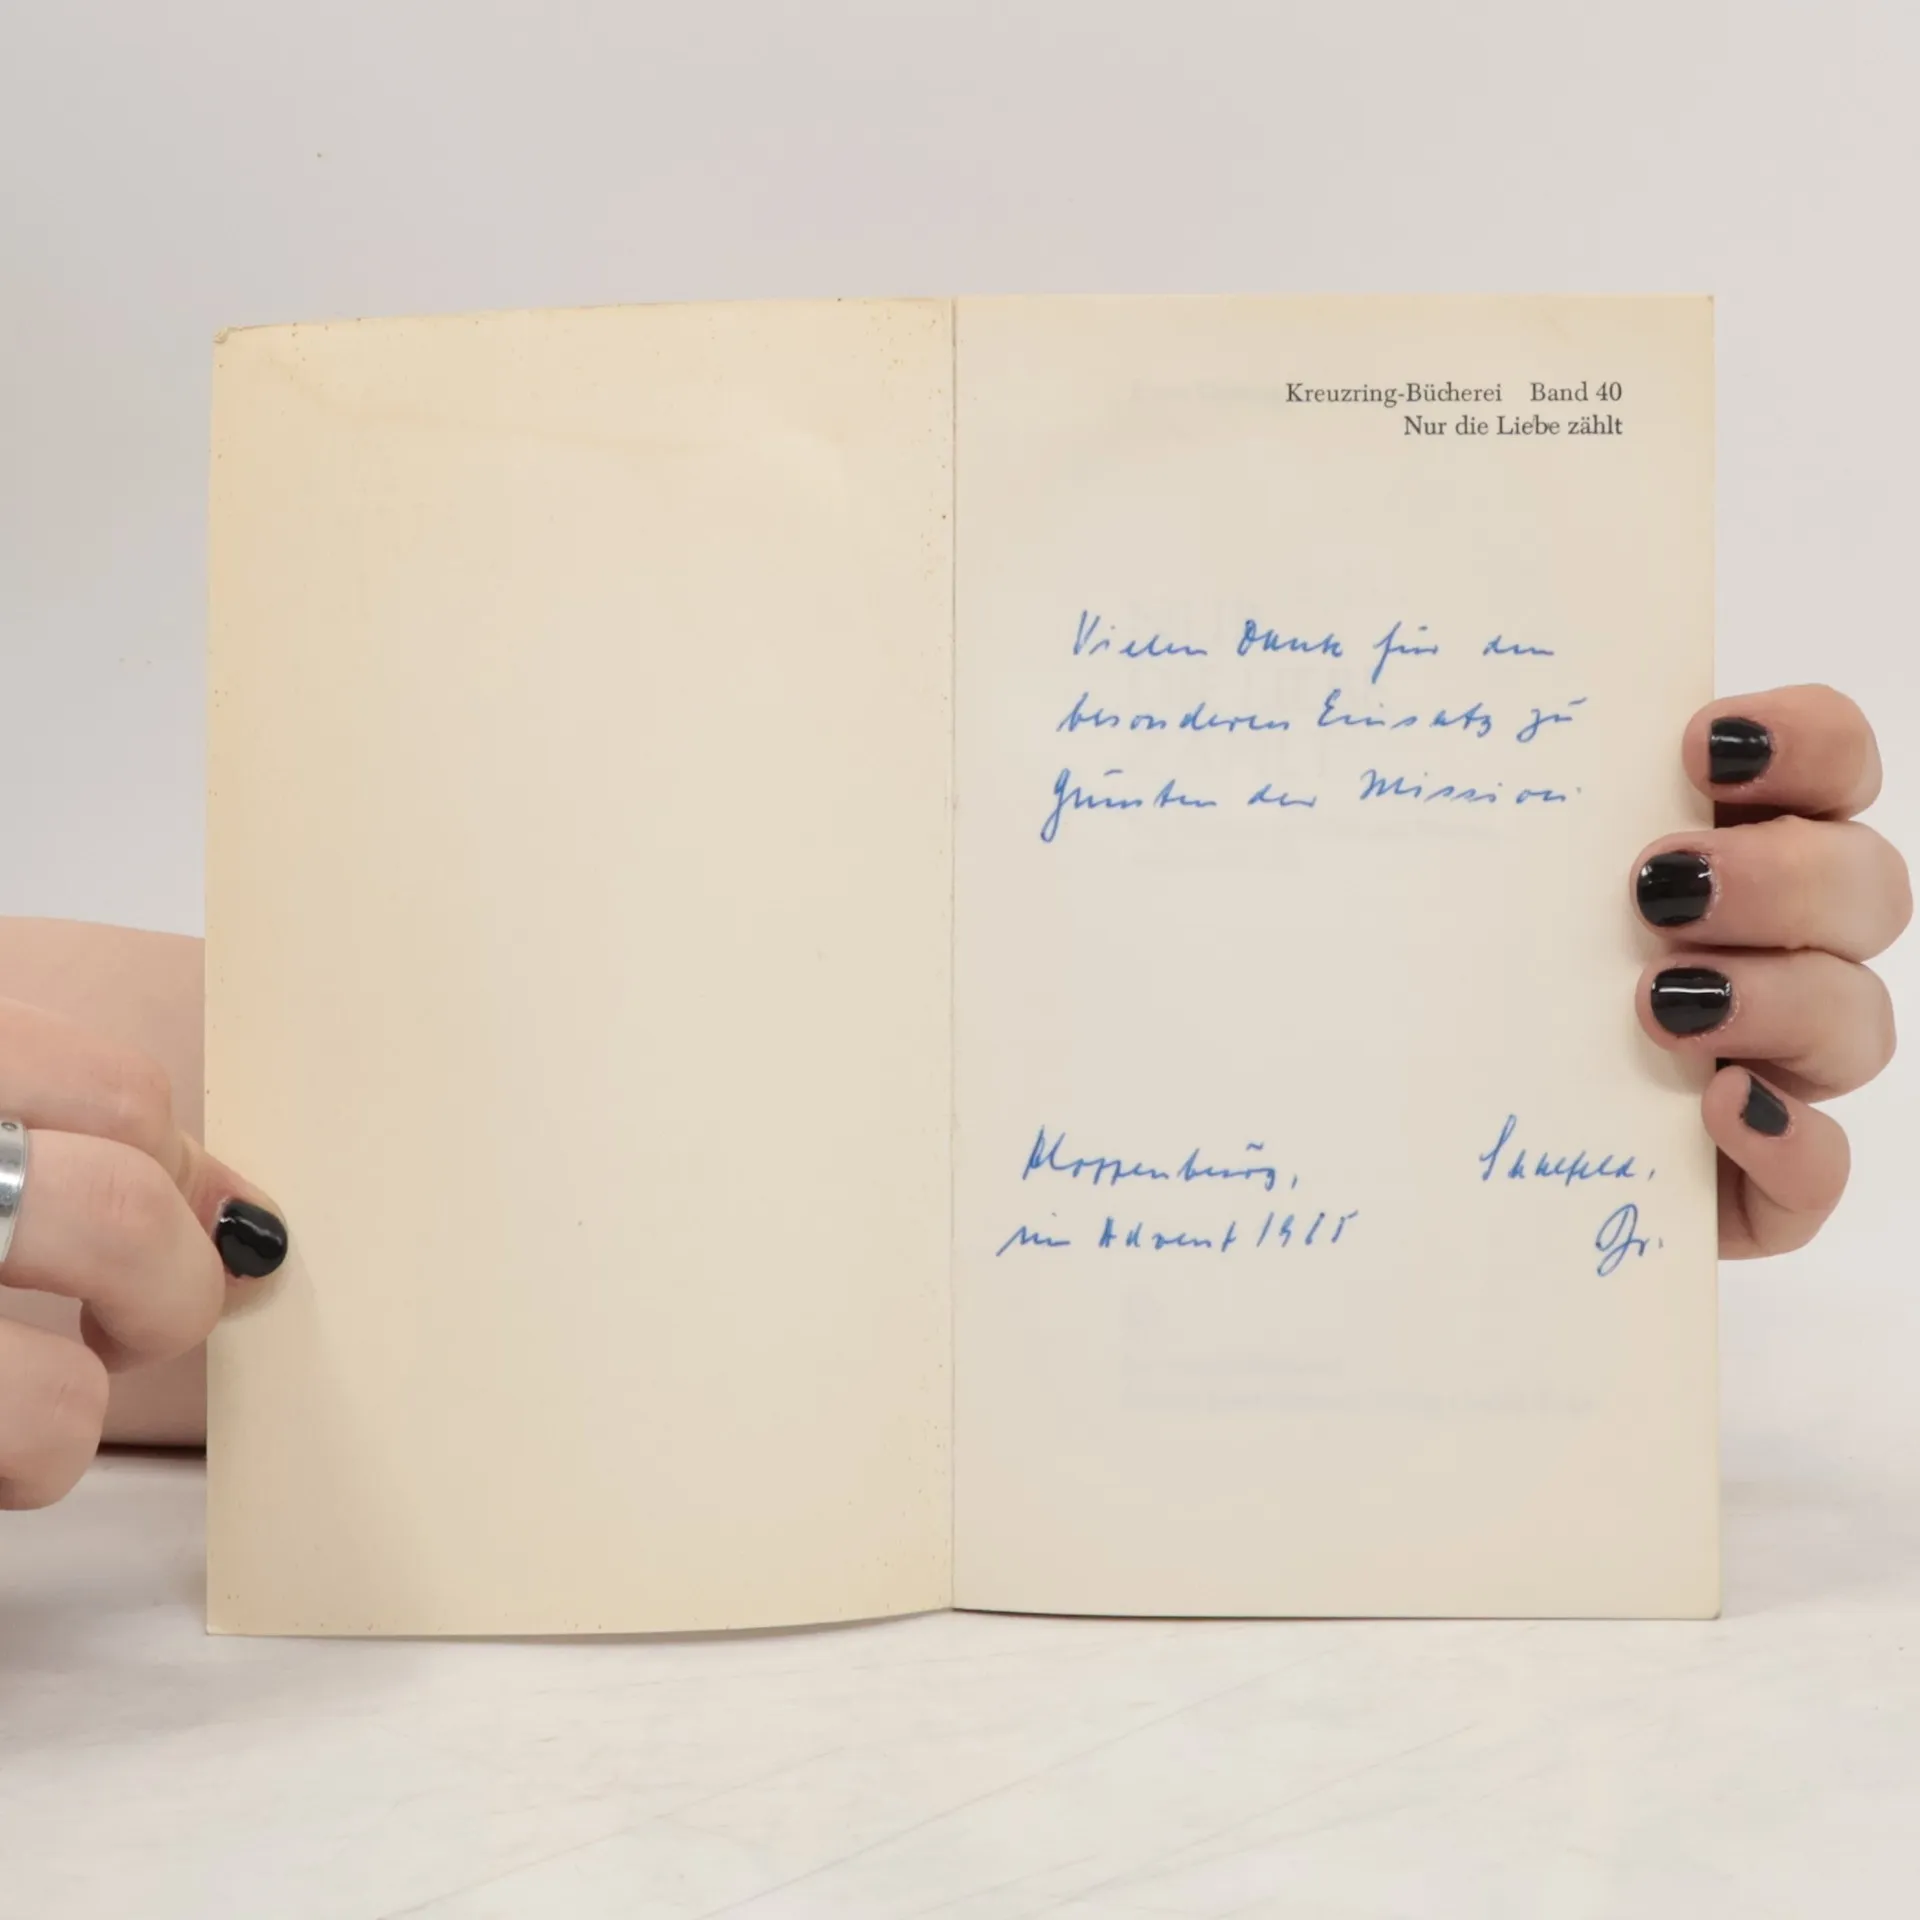 Kreuzring-Bücherei Band 40
Nur die Liebe zählt
Vielen Dank für den
besonderen Einsatz zu
Gunsten der Mission.
im Advent